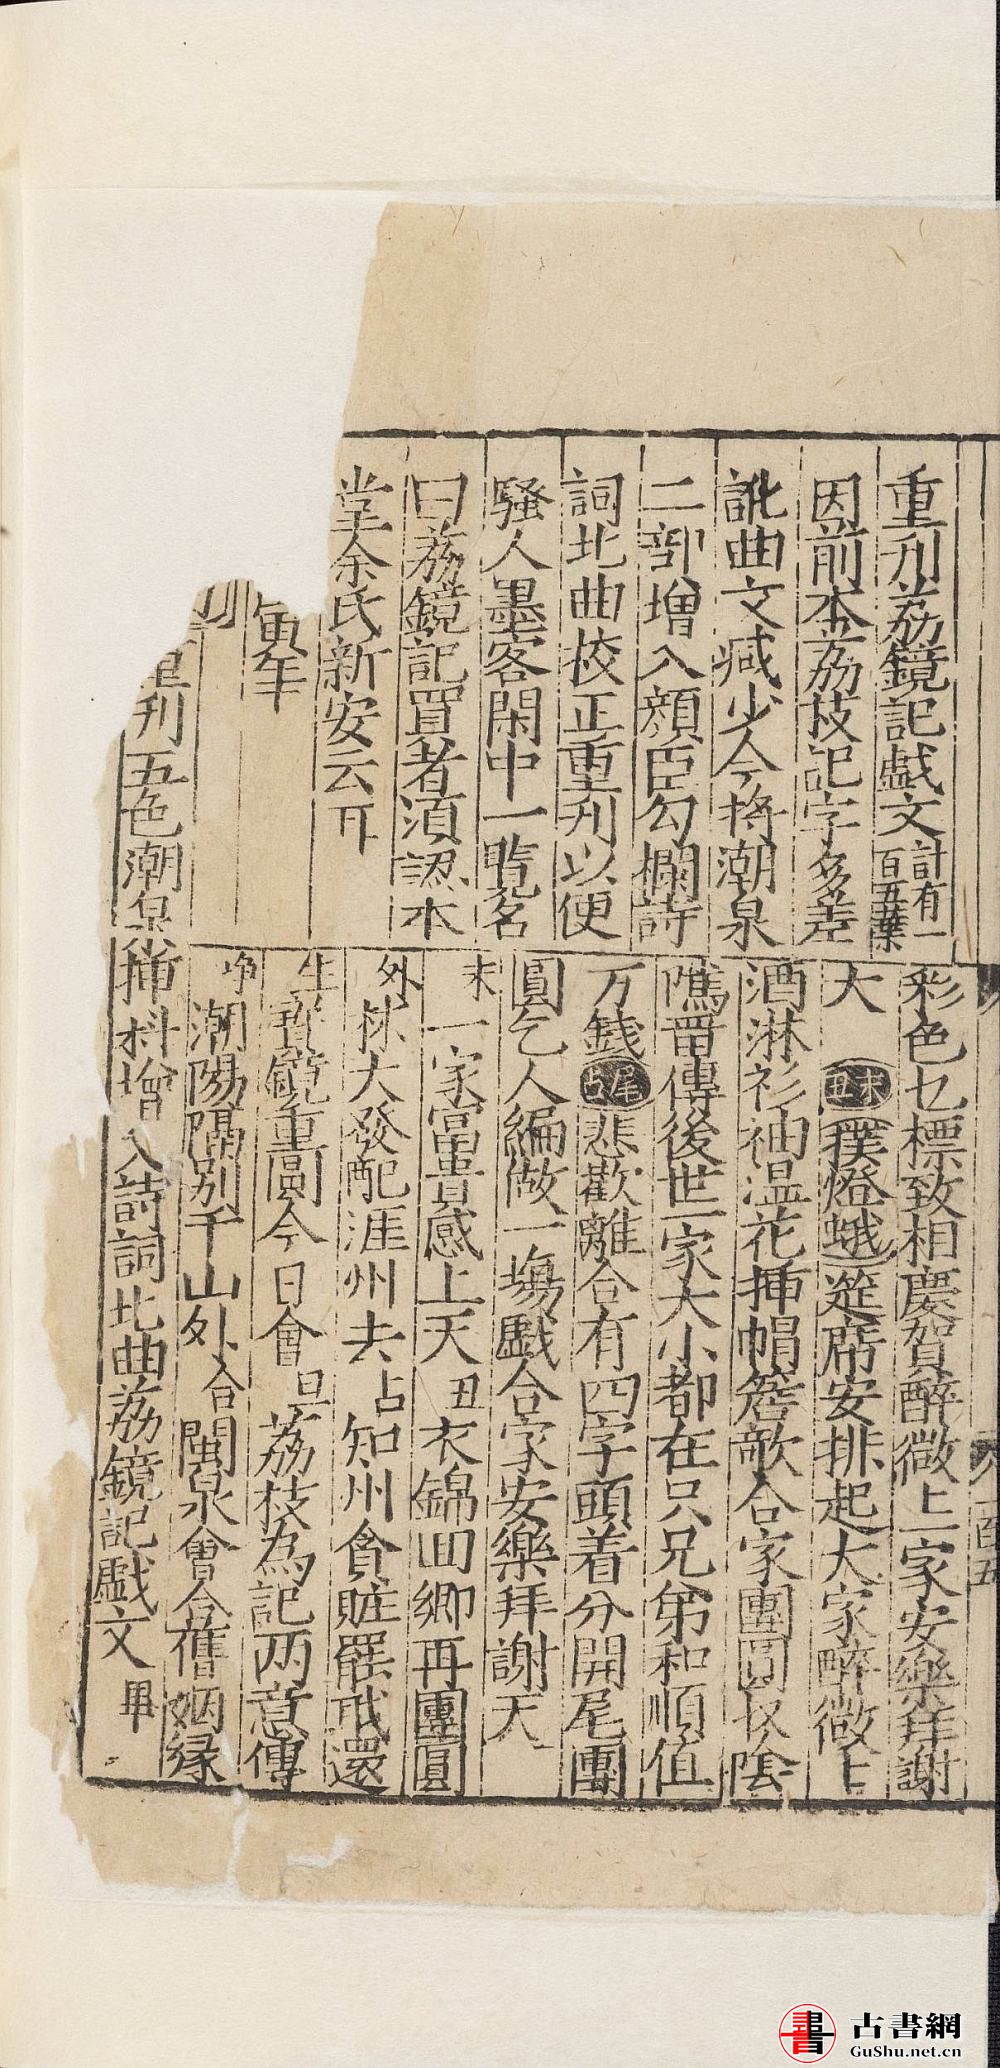 重刊荔鏡記戲文計有一百五葉
因前本荔枝記字多差
訛曲文減少今将潮泉
二部增入顔臣勾欄詩
詞北曲校正重刊以便
騷人墨客閑中一覽名
曰荔鏡記買者須認本
堂余氏新安云耳
寅年
彩色乜標致相慶賀醉微上一家安樂拜謝
大 末丑 撲燈蛾 筵席安排起大家醉微上
酒淋衫袖温花挿帽簷敵合家團圓
留傳後世一家大小都在只兄弟和順值
万錢 尾占 悲歡離合有四字頭着分開尾團
圓乞人編做一塲戲合家安樂拜謝天
末 一家富貴感上天 丑 衣錦回鄉再團圓
外 林大發配涯州去 占 知州貪賍罷戝還
生 寶鏡重圓今日會 旦 荔枝為記两意傳
净 潮陽隔别千山外 合 閩泉會合舊姻縁
重刊五色潮泉挿科增入詩詞北曲荔鏡記戲文 畢
百五
古書網
GuShu.net.cn